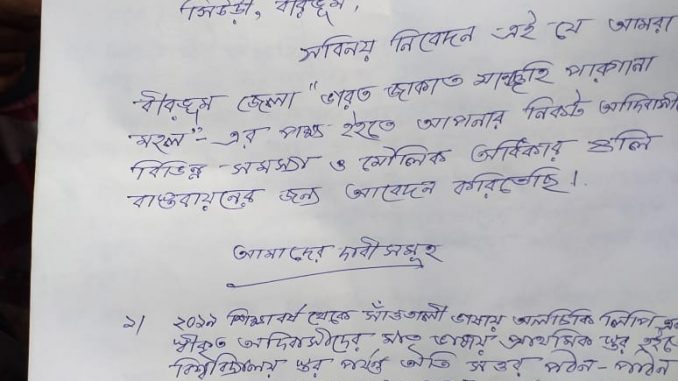 সিউড়ী, বীরভূম,
সবিনয় নিবেদন এই যে আমরা
বীরভূম জেলা "ভারত জাকাত মাঝি পারগানা
মহল"-এর পক্ষ হইতে আপনার নিকট আদিবাসী
বিভিন্ন সমস্যা ও মৌলিক অধিকার গুলি
বাস্তবায়নের জন্য আবেদন করিতেছি।
আমাদের দাবীসমূহ
১) ২০১৯ শিক্ষাবর্ষ থেকে সাঁওতালী ভাষায় অলচিকি লিপি
স্বীকৃত আদিবাসীদের মাতৃ ভাষায় প্রাথমিক স্তর হইতে
বিশ্ববিদ্যালয় স্তর পর্যন্ত অতি সত্তর পঠন-পাঠন